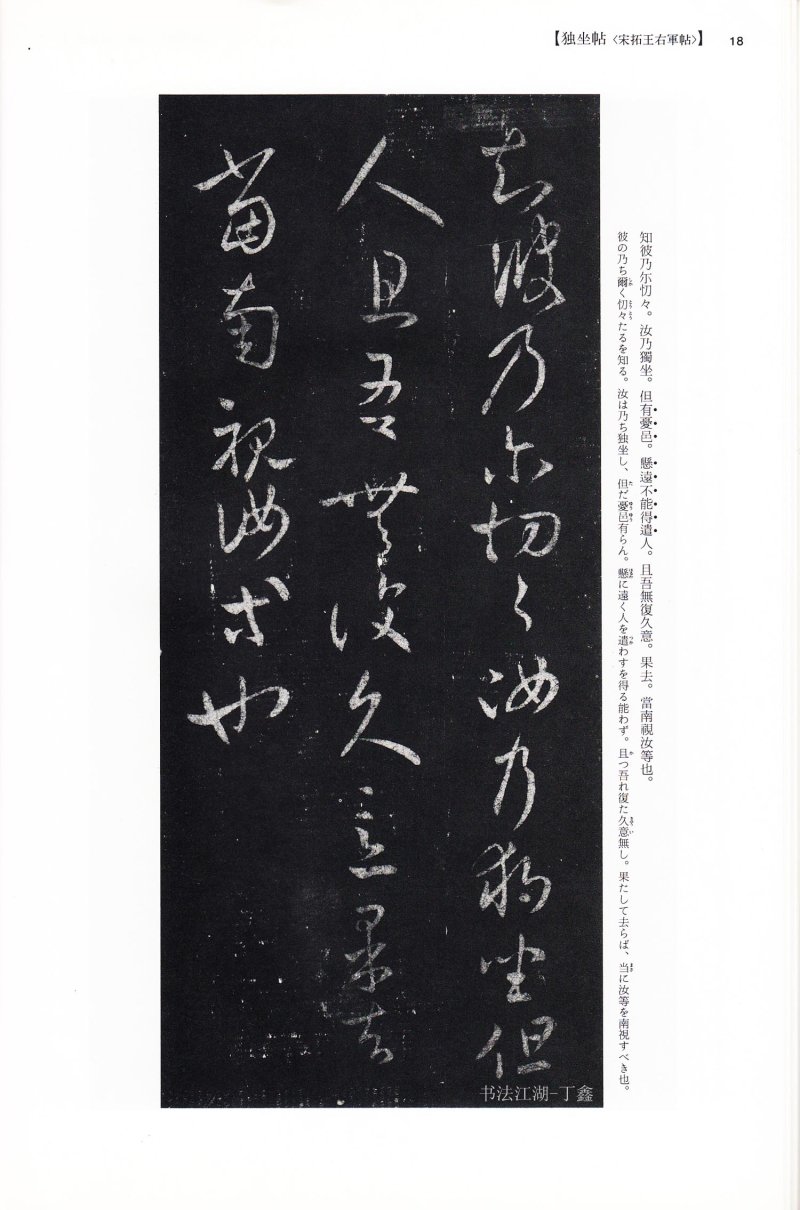 【独坐帖〈宋拓王右軍帖〉】 18
知彼乃尓忉々。汝乃獨坐。但有憂邑。懸遠不能得遣人。且吾無復久意。果去。當南視汝等也。
彼の乃ち爾く忉々たるを知る。汝は乃ち独坐し、但だ憂邑有らん。懸に遠く人を遣わすを得る能わず。且つ吾れ復た久意無し。果たして去らば、当に汝等を南視すべき也。
知彼乃尓忉々汝乃獨坐但
人且吾無復久意果去
當南視汝等也
书法江湖-丁鑫